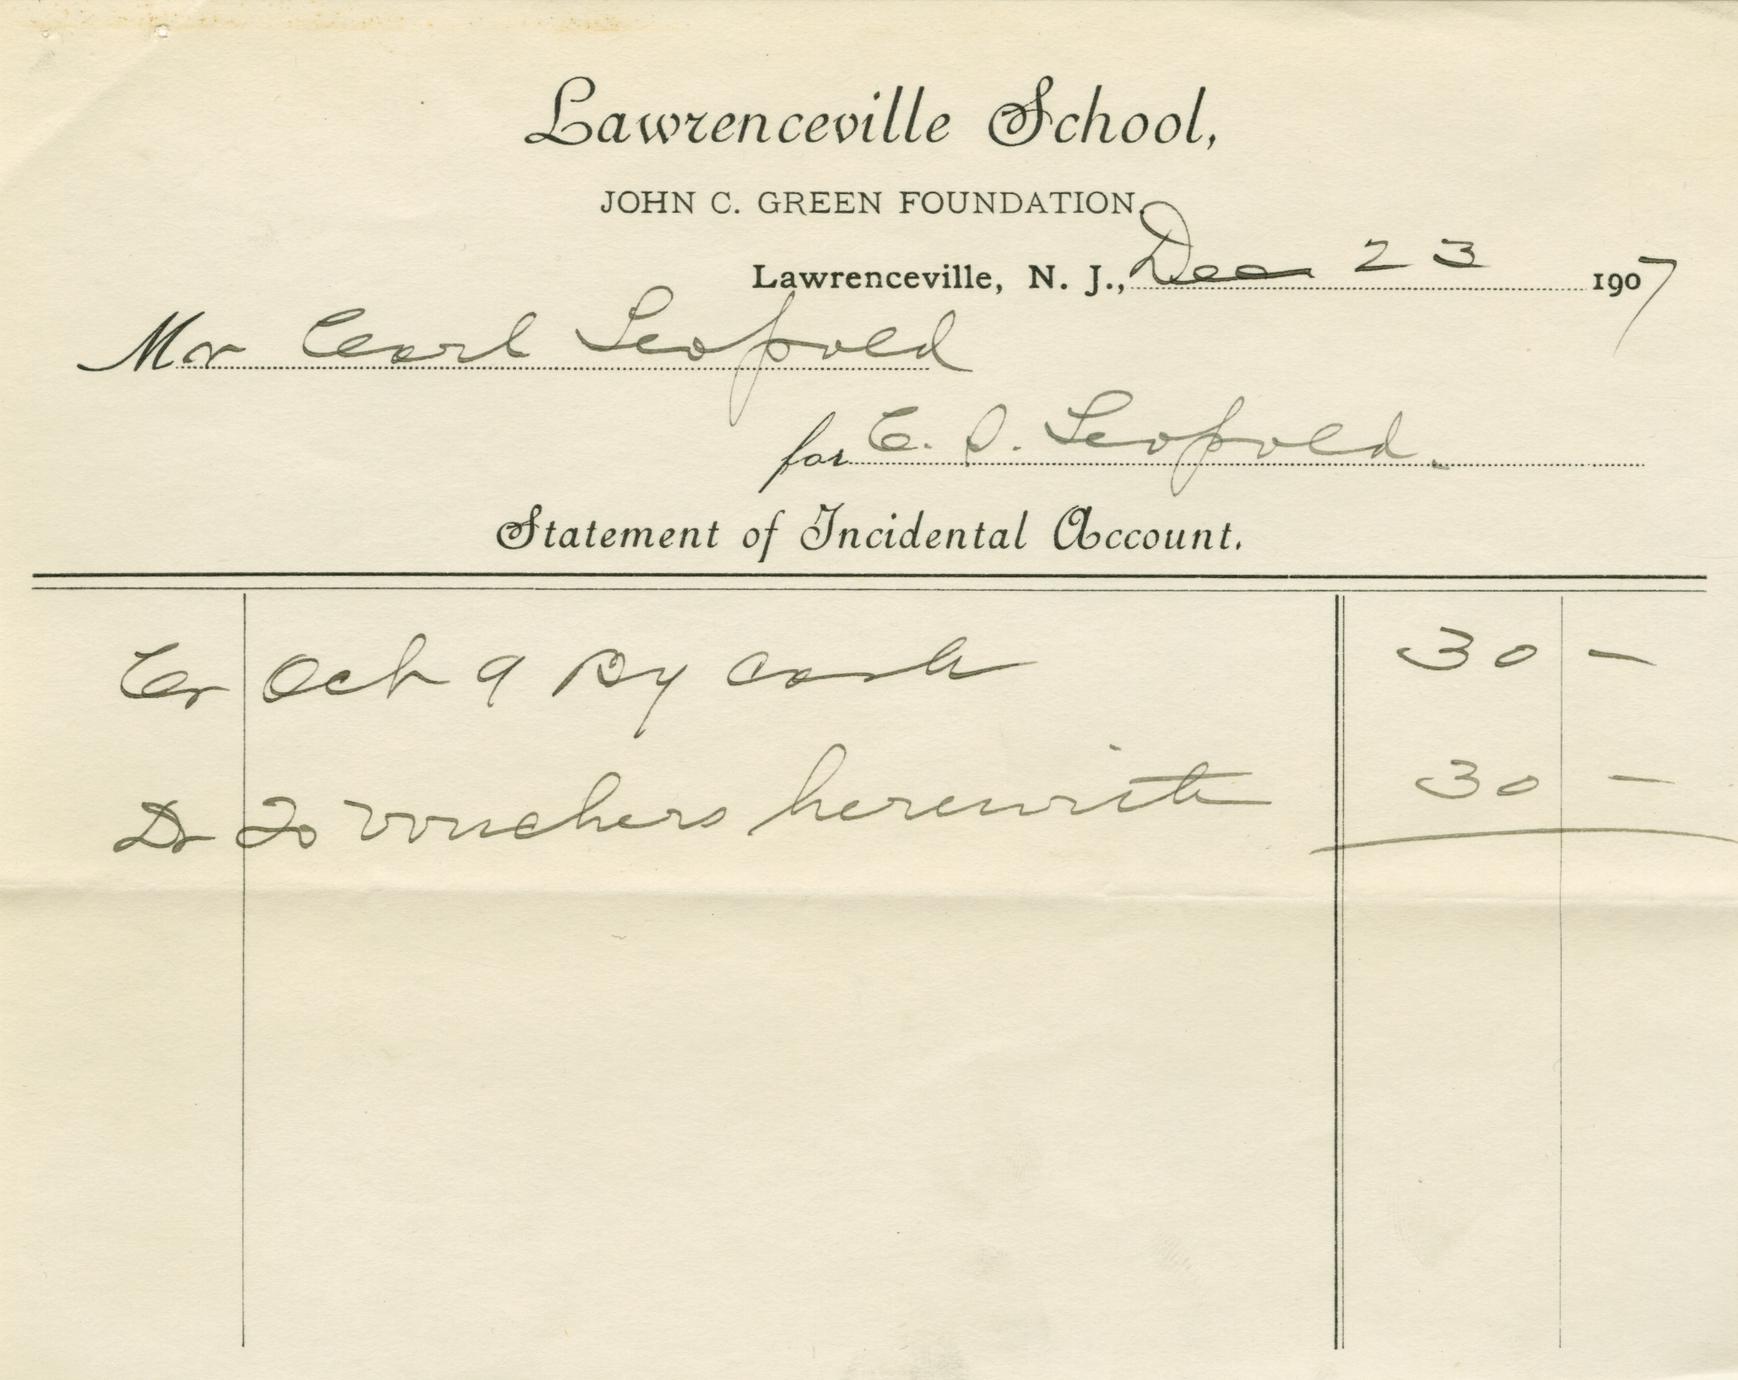 Lawrenceville School,
JOHN C. GREEN FOUNDATION.
Lawrenceville, N. J., Dec 23 1907
Mr Carl Leopold
for C. S. Leopold.
Statement of Incidental Account.
Cr Oct 9 By cash 30 —
Dr To vouchers herewith 30 —